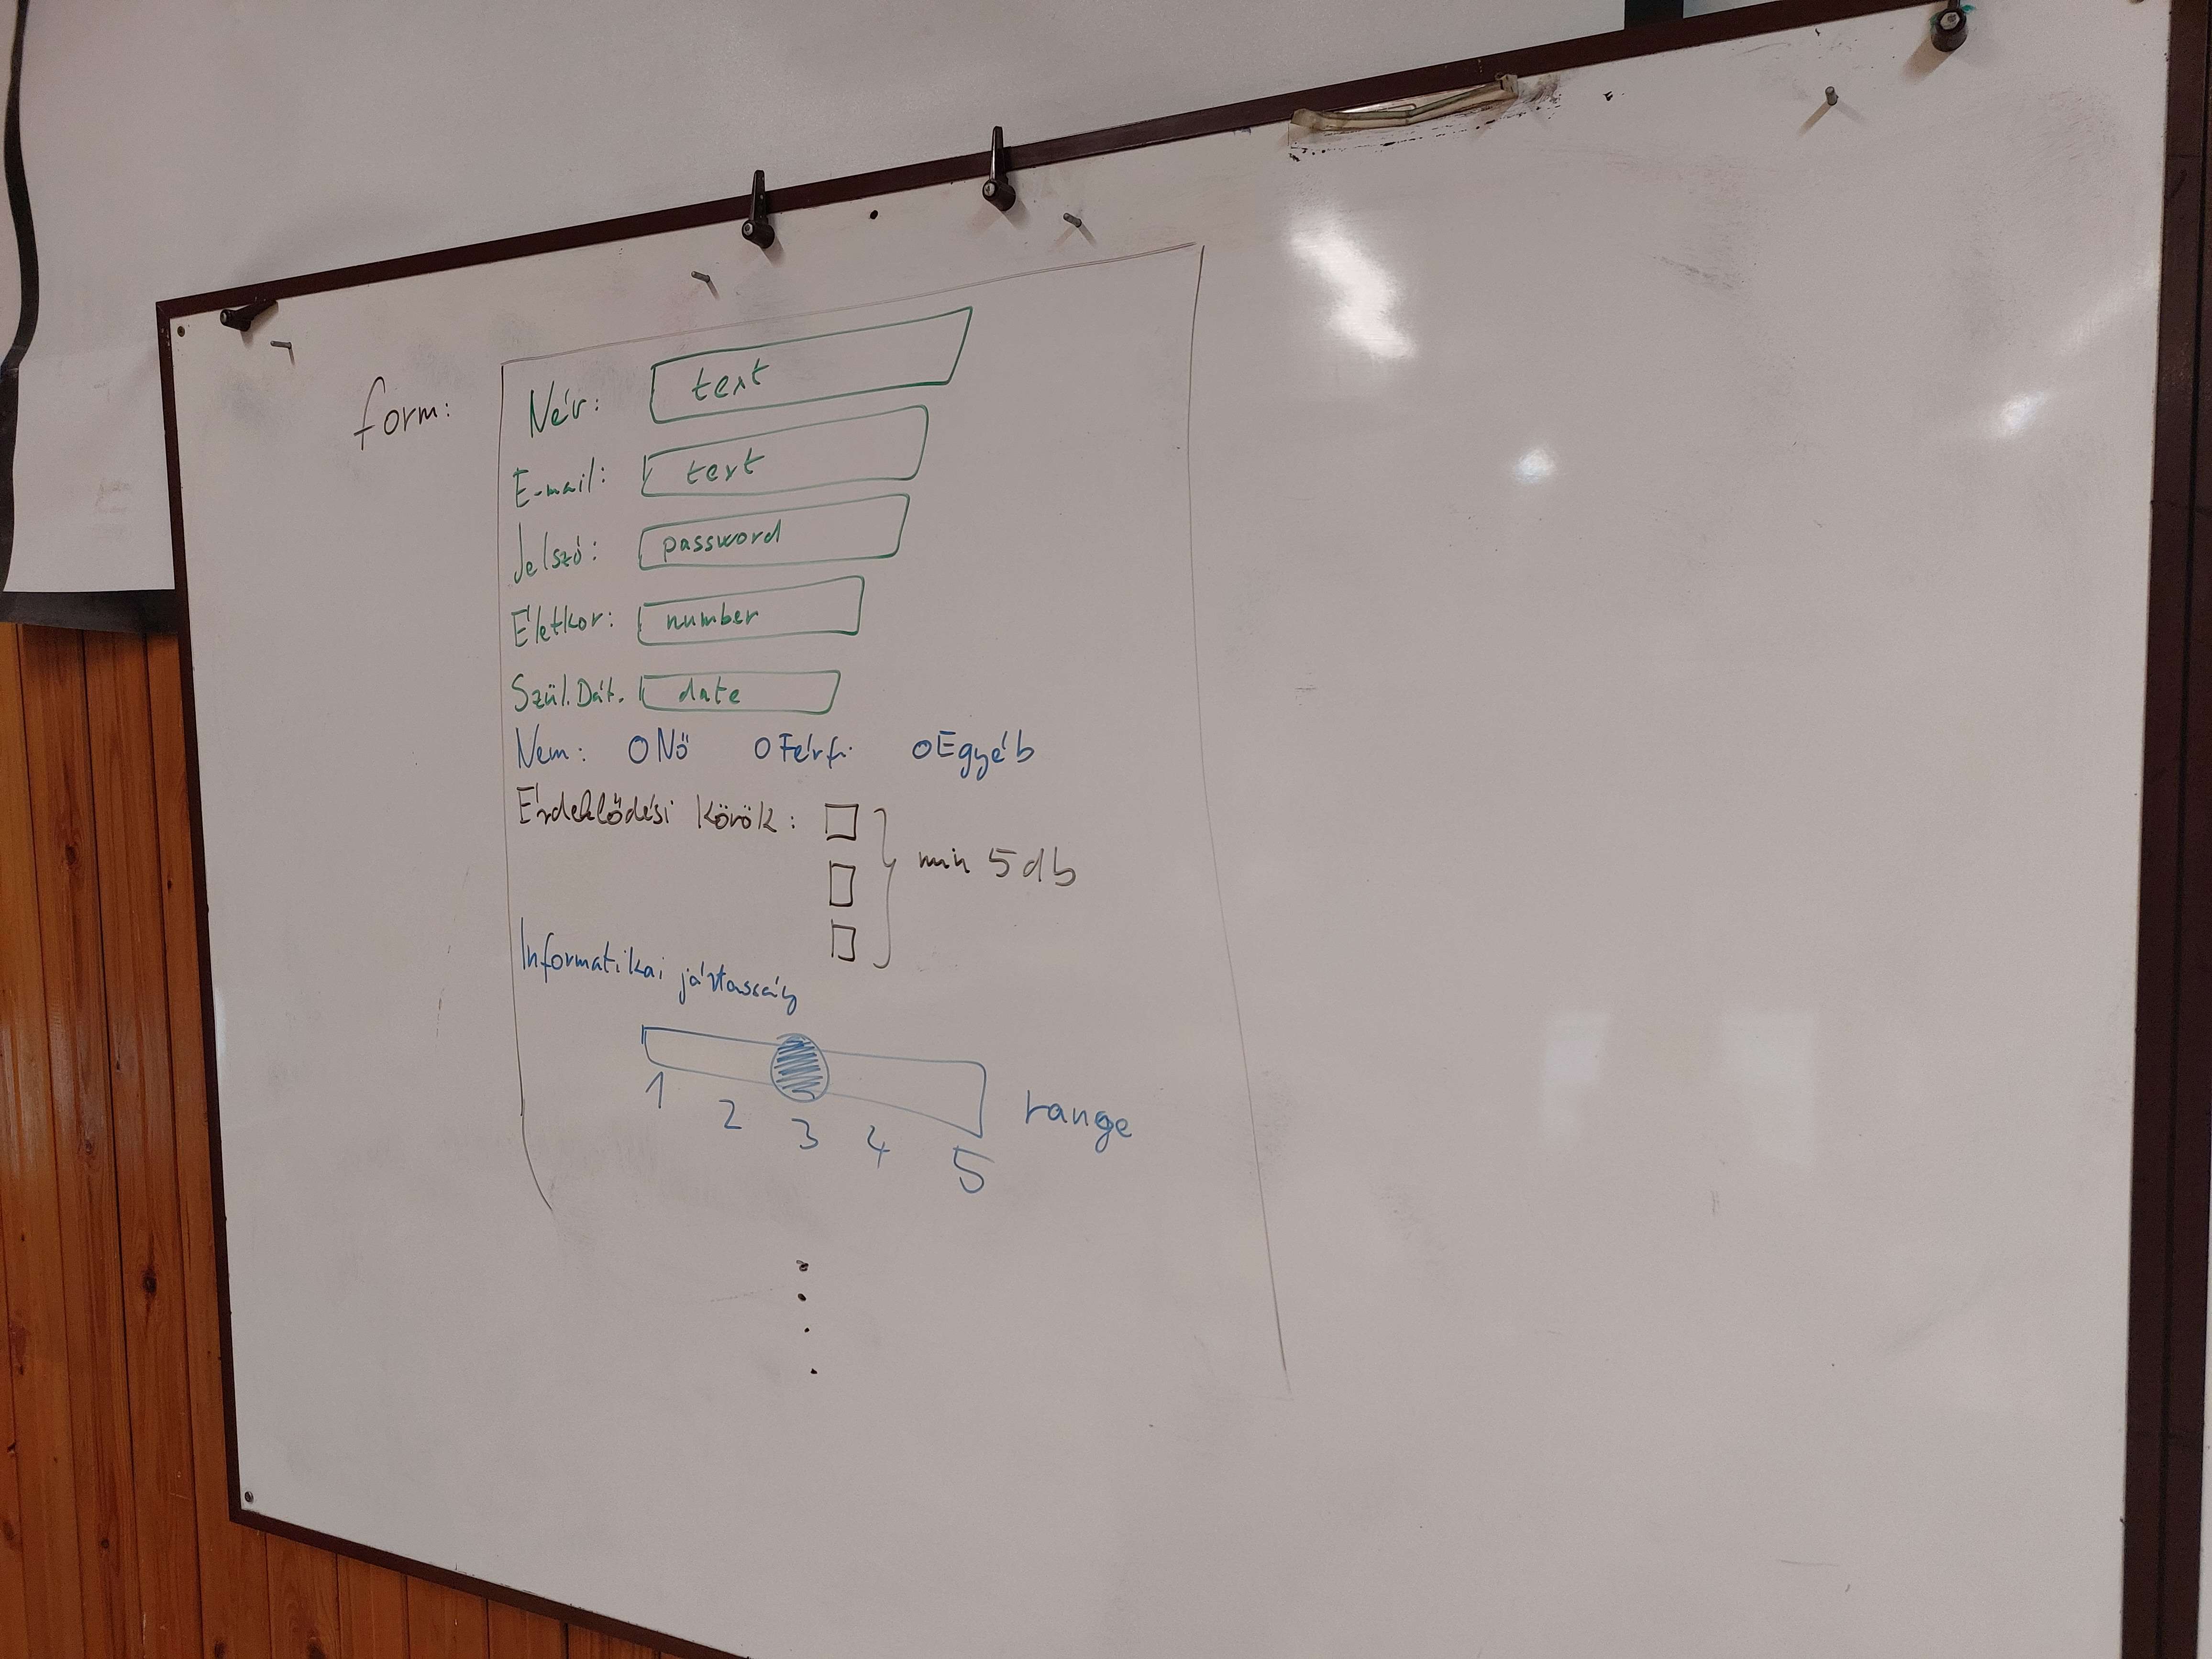 form:
Név: text
E-mail: text
Jelszó: password
Életkor: number
Szül. Dát. date
Nem: Nő Férfi Egyéb
Érdeklődési körök: min 5 db
Informatikai jártasság
1 2 3 4 5 range